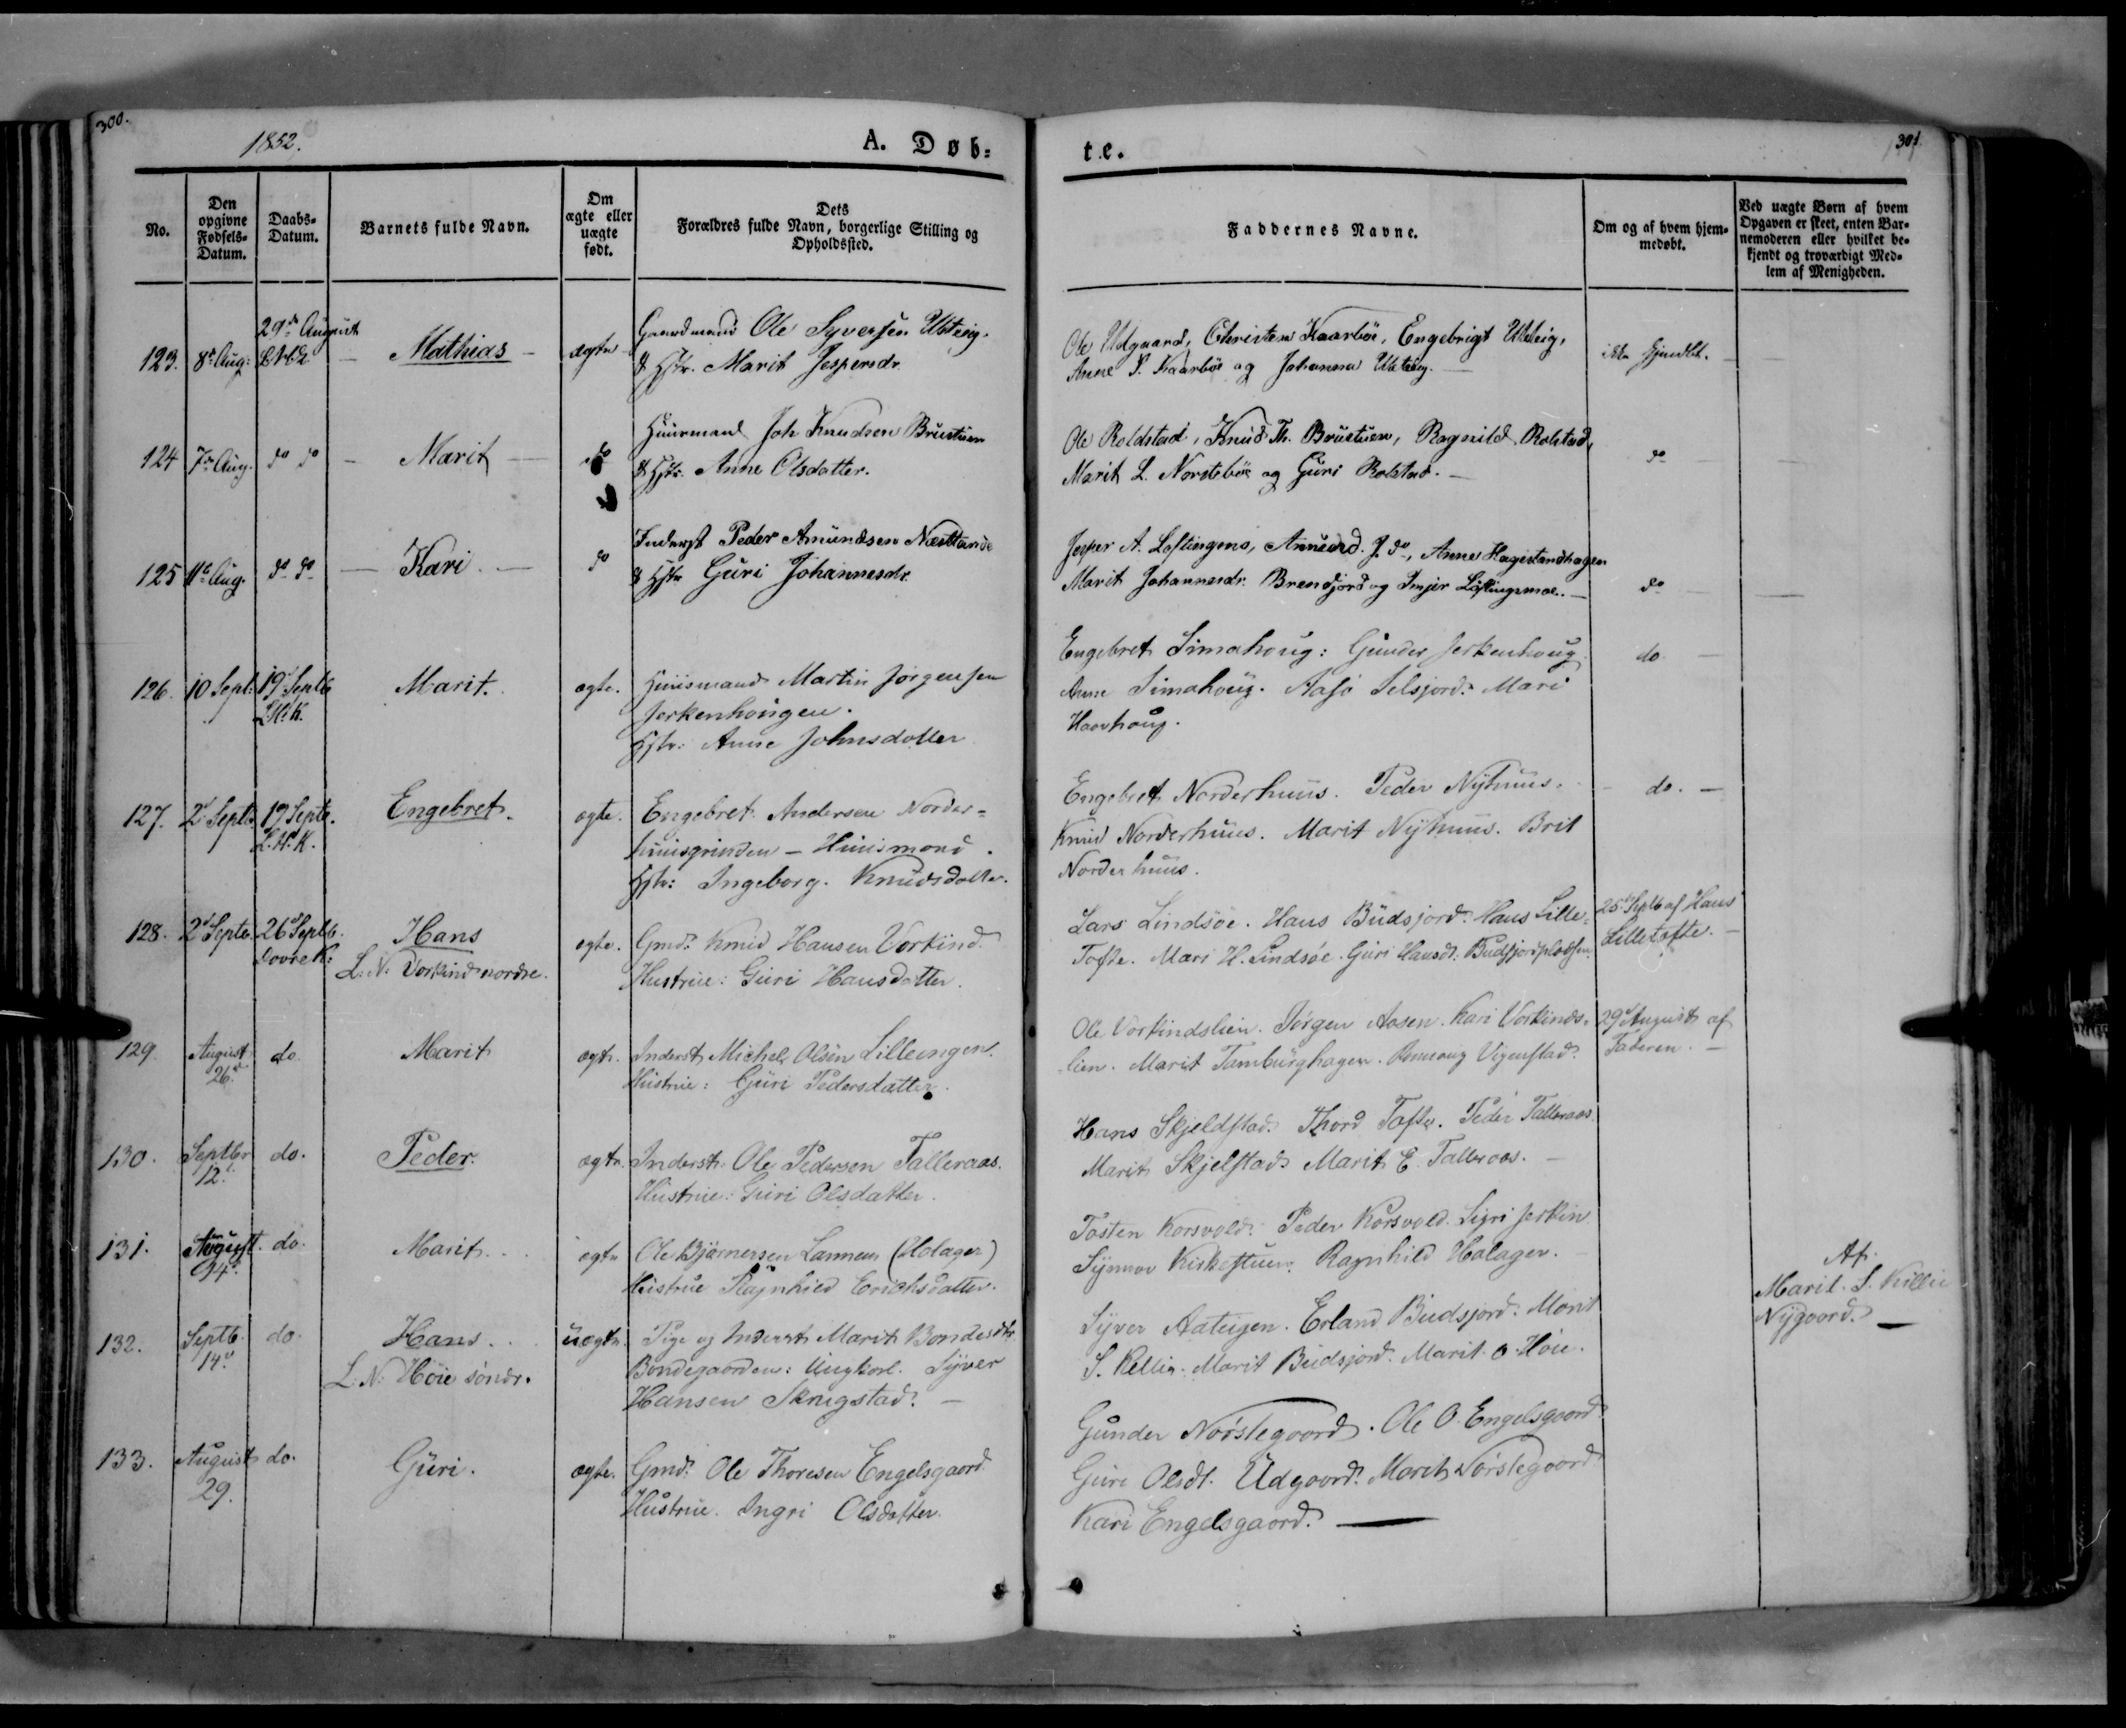 300.
1852.
A. Døb=
te.
301.
No.
Den
opgivne
Fødsels-
Datum.
Daabs-
Datum.
Barnets fulde Navn.
Om
ægte eller
uægte
født.
Dets
Forældres fulde Navn, borgerlige Stilling og
Opholdssted.
Faddernes Navne.
Om og af hvem hjem-
medøbt.
Ved uægte Børn af hvem
Opgaven er skeet, enten Bar-
nemoderen eller hvilket be-
kjendt og troværdigt Med-
lem af Menigheden.
123. 8de Aug: 29de August — Mathias — ægte Gaardmand Ole Syversen Ulsteig.
& Hstr. Marit Jespersdr.
Ole Udgaard, Christen Kaarbøe, Engebrigt Ulsteig,
Anne P. Kaarbøe og Johanna Ulsteig. —
ikke hjemdbt. —
124 7de Aug. do do — Marit — do Huusmand Joh Knudsen Brustuen
& Hstr. Anne Olsdatter.
Ole Roldstad, Knud Th. Brustuen, Ragnild Rolstad,
Marit L. Norstebøe og Guri Rolstad. —
do
125 11te Aug. do do — Kari — do Inderst Peder Amundsen Næstande
& Hstr Guri Johannesdr.
Jesper A. Løftingsmo, Amund J. do, Anne Hagestandhagen
Marit Johannesdr. Brendjord og Løftingsmoe. —
do
126. 10 Sept: 19d Septb
L. H. K. Marit. ægte. Huusmand Martin Jørgensen
Jerkenhougen.
Hstr: Anne Johnsdatter
Engebret Simahoug: Gunder Jerkenhoug
Anne Simahoug. Aase Selsjord. Mari
Haavhoug.
do —
127. 2d Septb 19 Septb.
L. H. K. Engebret. ægte. Engebret Andersen Norder=
huusgrinden — Huusmand.
Hstr: Ingeborg. Knudsdatter.
Engebret Norderhuus. Peder Nyhuus.
Knud Norderhuus. Marit Nyhuus. Brit
Norderhuus.
— do. —
128. 2d Septb 26d Septb.
Dovre K: Hans
L. N: Vorkind nordre. ægte. Gmd. Knud Hansen Vorkind.
Hustrue: Guri Hansdatter.
Lars Lindsøe. Hans Budsjord. Hans Lille=
Tofte. Mari H. Lindsøe. Guri Hansdt. Budsjordpladsen.
25d Septb af Hans
Lilletofte. —
129. August
26d do. Marit ægte. Inderst Michel Olsen Lilleengen.
Hustrue: Guri Pedersdatter.
Ole Vorkindslien. Jørgen Aasen. Kari Vorkinds=
lien. Marit Tamburghagen. Rannoug Vigenstad.
29d August af
Faderen. —
130. Septbr
12d. do. Peder. ægte. Inderst: Ole Pedersen Talleraas.
Hustrue: Guri Olsdatter.
Hans Skjeldstad. Thord Tofte. Peder Talleraas.
Marit Skjelstad. Marit E. Talleraas. —
131. August.
24d. do. Marit. ægte Ole Bjørnersen Lannem (Holager)
Hustrue Ragnhild Erichsdatter.
Tosten Korsvold. Peder Korsvold. Sigri Jerkin
Synnøv Kirkestuen. Ragnhild Halager. —
132. Septb.
14d. do. Hans.
L. N. Høie søndr. uægte. Pige og Inderst Marit Bondesdtr.
Bondegaarden: Ungkarl. Syver
Hansen Skrugstad. —
Syver Aateigen. Erland Budsjord. Marit
S. Killie. Marit Budsjord. Marit O. Høie.
Af.
Marit. S. Killie
Nygaard. —
133. August
29. do. Guri. ægte. Gmd. Ole Thoresen Engelsgaard
Hustrue. Ingri Olsdatter.
Gunder Nørstegaard. Ole O. Engelsgaard
Guri Olsdt. Udgaard. Marit Nørstegaard
Kari Engelsgaard. —